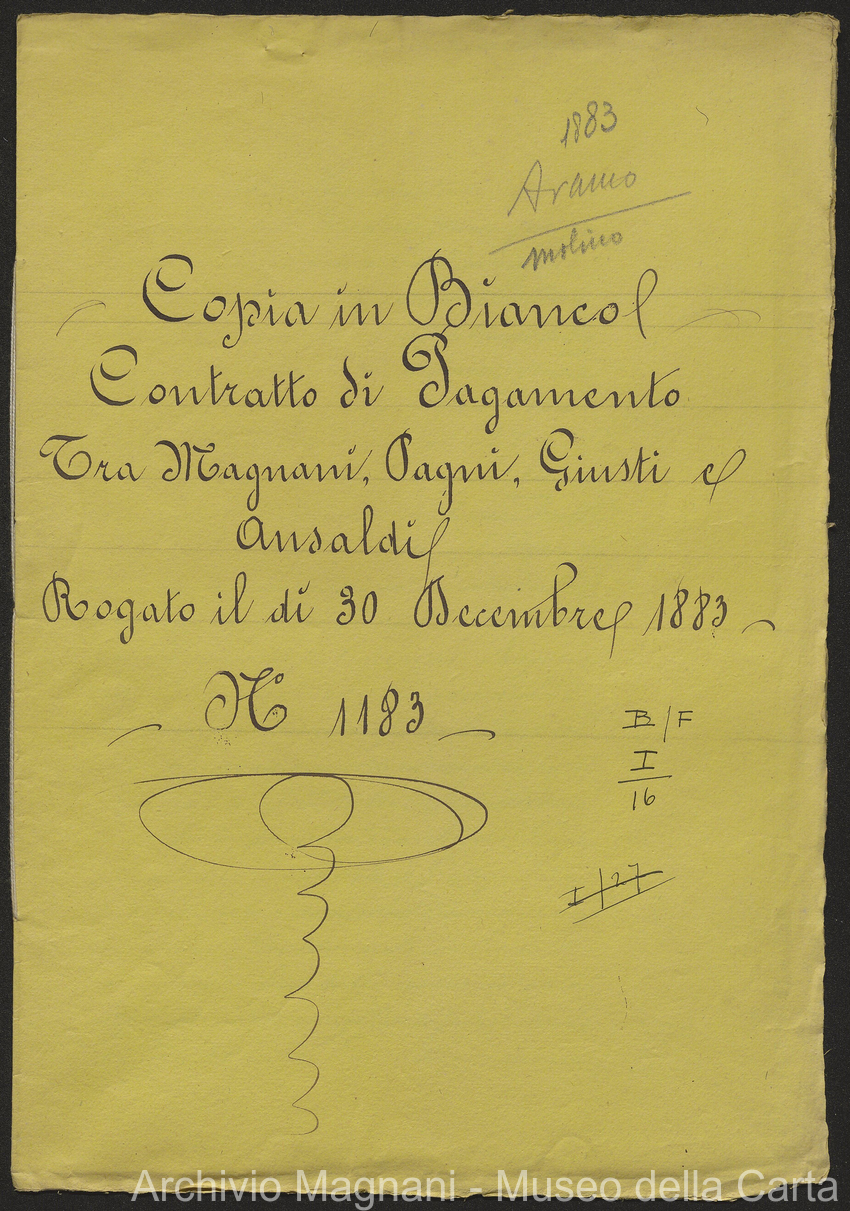 1883
Aramo
molino
Copia in Bianco
Contratto di Pagamento
Tra Magnani, Pagni, Giusti e
Ansaldi
Rogato il di 30 Decembre 1883
N° 1183
B/F
I
16
I/27
Archivio Magnani - Museo della Carta